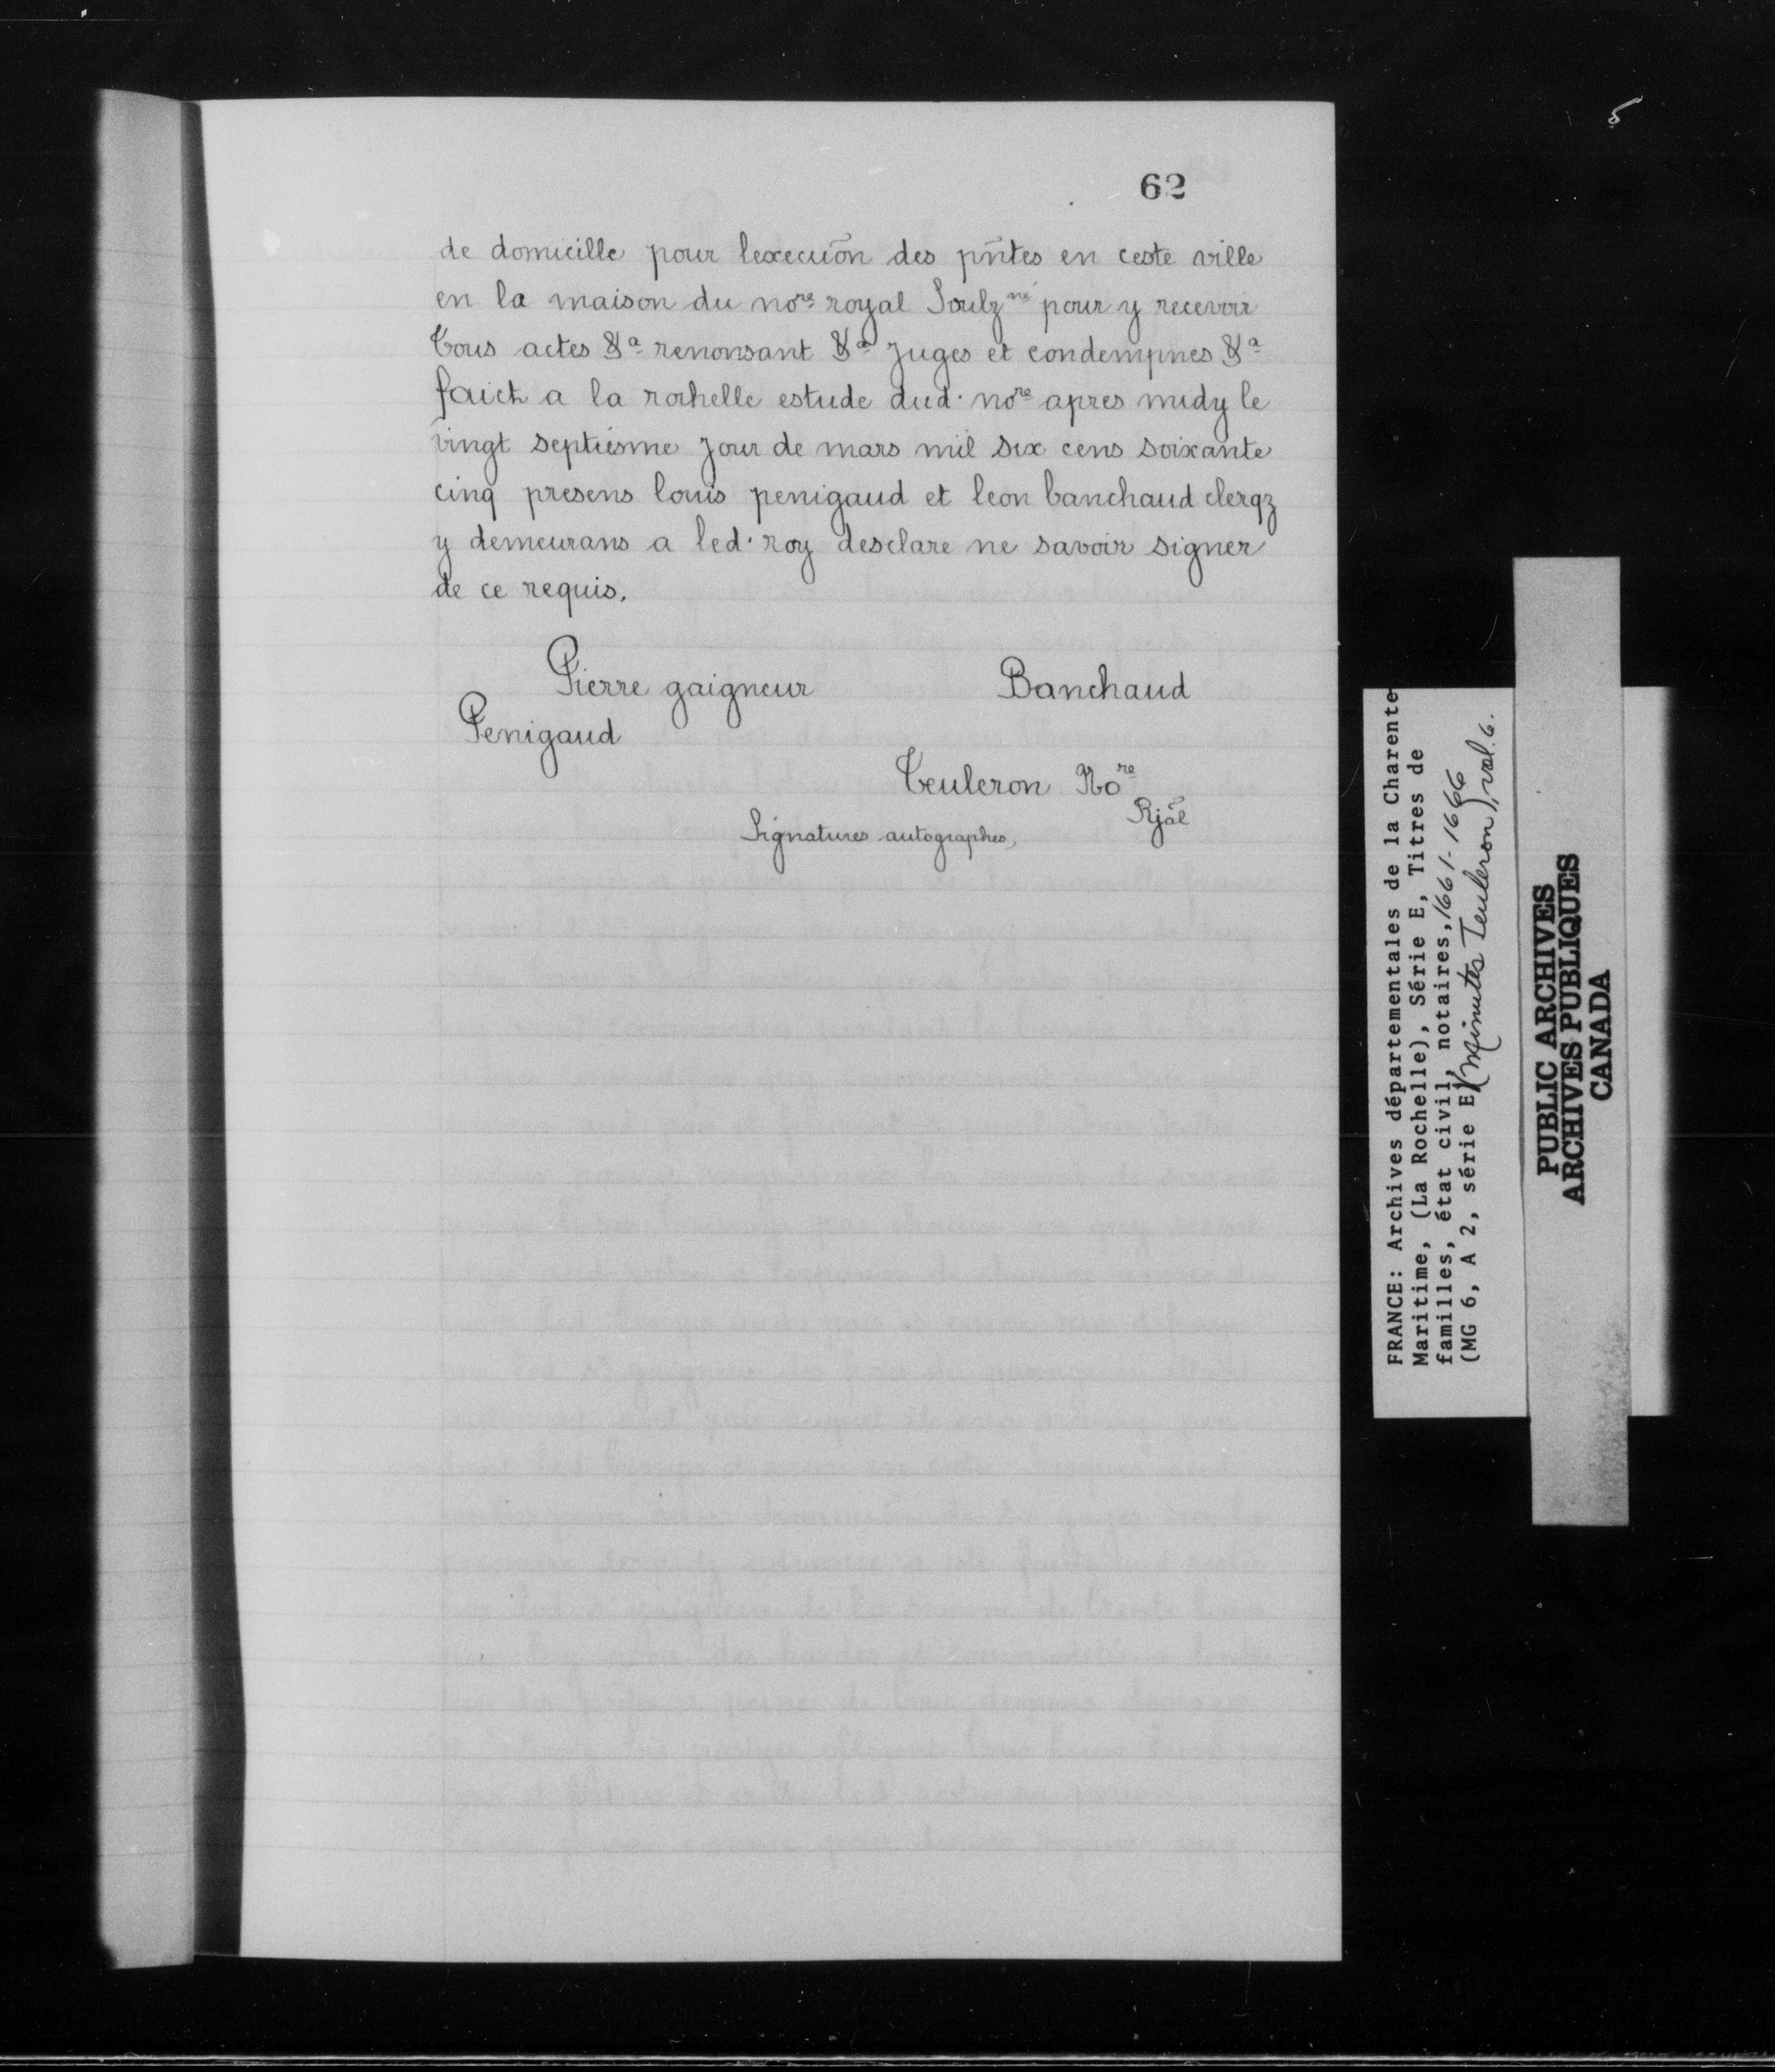 5
62
de domicille pour lexecuõn des pñtes en ceste ville
en la maison du no.re royal Soulz né pour y recevoir
Tous actes &a renonsant &a Juges et condempnes &a
faict a la rochelle estude dud. no.re apres midy le
vingt septiesme Jour de mars mil six cens soixante
cinq presens louis penigaud et leon banchaud clerqz
y demeurans a led. roy desclare ne savoir signer
de ce requis.
Pierre gaigneur Banchaud
Penigaud
Teuleron No.re
Rjãl
Signatures autographes,
FRANCE: Archives départementales de la Charente
Maritime, (La Rochelle), Série E, Titres de
familles, état civil, notaires, 1661-1666
(MG 6, A 2, série E) (Minutes Teuleron), vol. 6.
PUBLIC ARCHIVES
ARCHIVES PUBLIQUES
CANADA